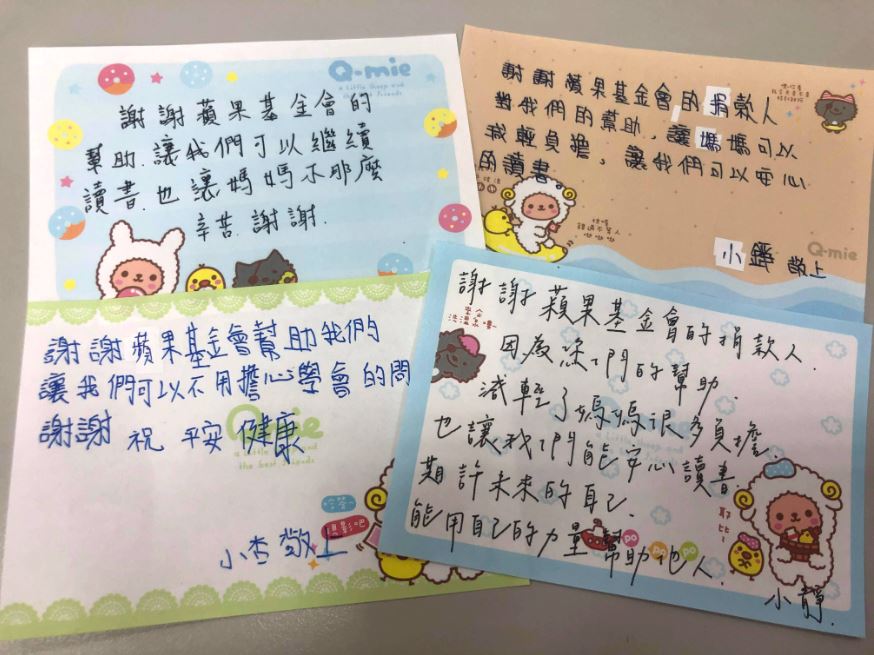 Q-mie
a little Sheep and
the best friends
謝謝蘋果基金會的
幫助.讓我們可以繼續
讀書.也讓媽媽不那麼
辛苦.謝謝.
謝謝蘋果基金會的捐款人
對我們的幫助,讓媽媽可以
減輕負擔,讓我們可以安心
的讀書
小鐸 敬上
Q-mie
謝謝蘋果基金會幫助我們
讓我們可以不用擔心學會的問
謝謝 祝 平安 健康
Q-mie
a little Sheep and
the best friends
小杏敬上
謝謝蘋果基金會的捐款人.
因為您們的幫助.
減輕了媽媽很多負擔.
也讓我們能安心讀書.
期許未來的自己.
能用自己的力量幫助他人.
小靜.
po
po
po